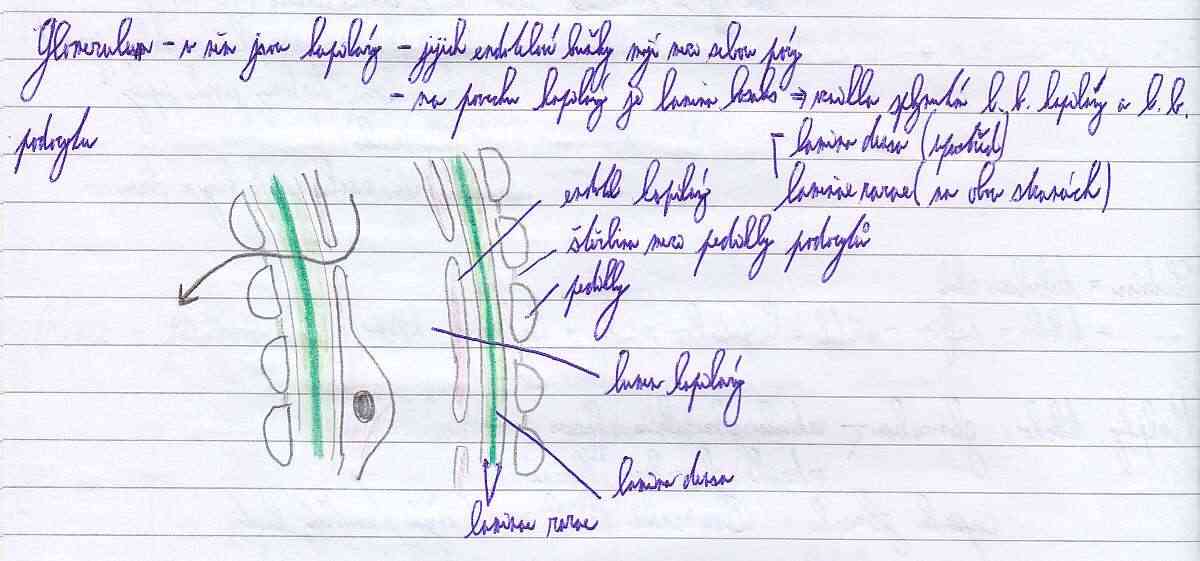 Glomerulum - v něm jsou kapiláry - jejich endotelové buňky mají mezi sebou póry
- na povrchu kapiláry je lamina basalis → vznikla splynutím b. b. kapiláry a b. b.
podocytu
lamina densa (uprostřed)
laminae rarae (na obou stranách)
endotel kapiláry
štěrbina mezi pedikly podocytů
pedikly
lumen kapiláry
lamina densa
laminae rarae